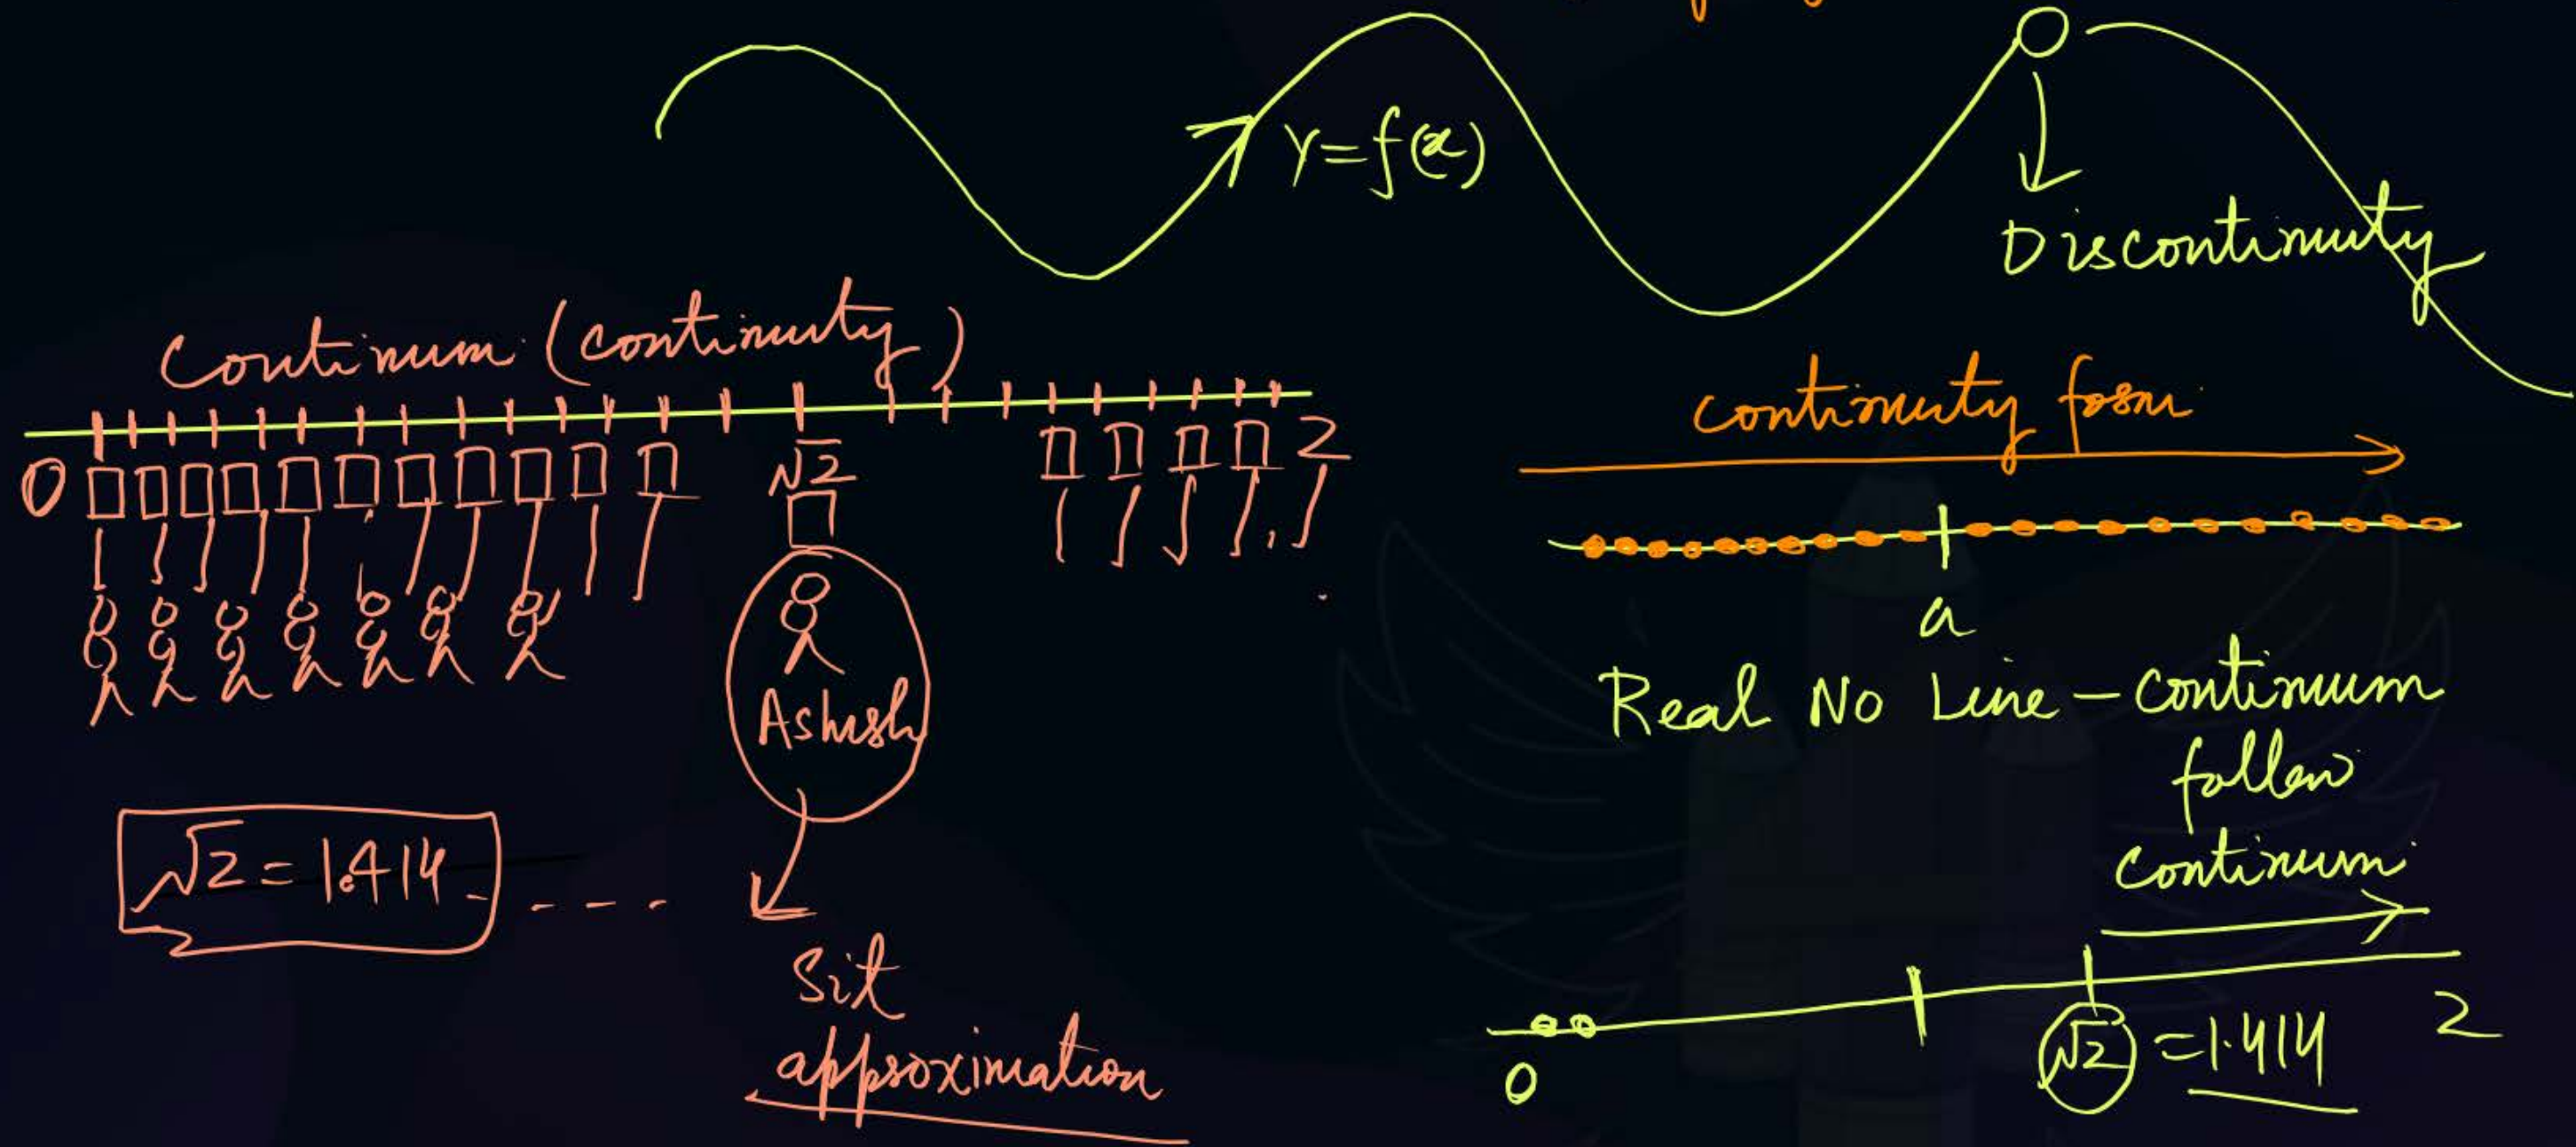 Y=f(x)
Discontinuty
Continum (continuty)
0 √2 2
Ashish
√2 = 1.414 - - - -
Sit
approximation
continuty form
a
Real No Line - Continuum
follow
Continum
0 √2 = 1.414 2